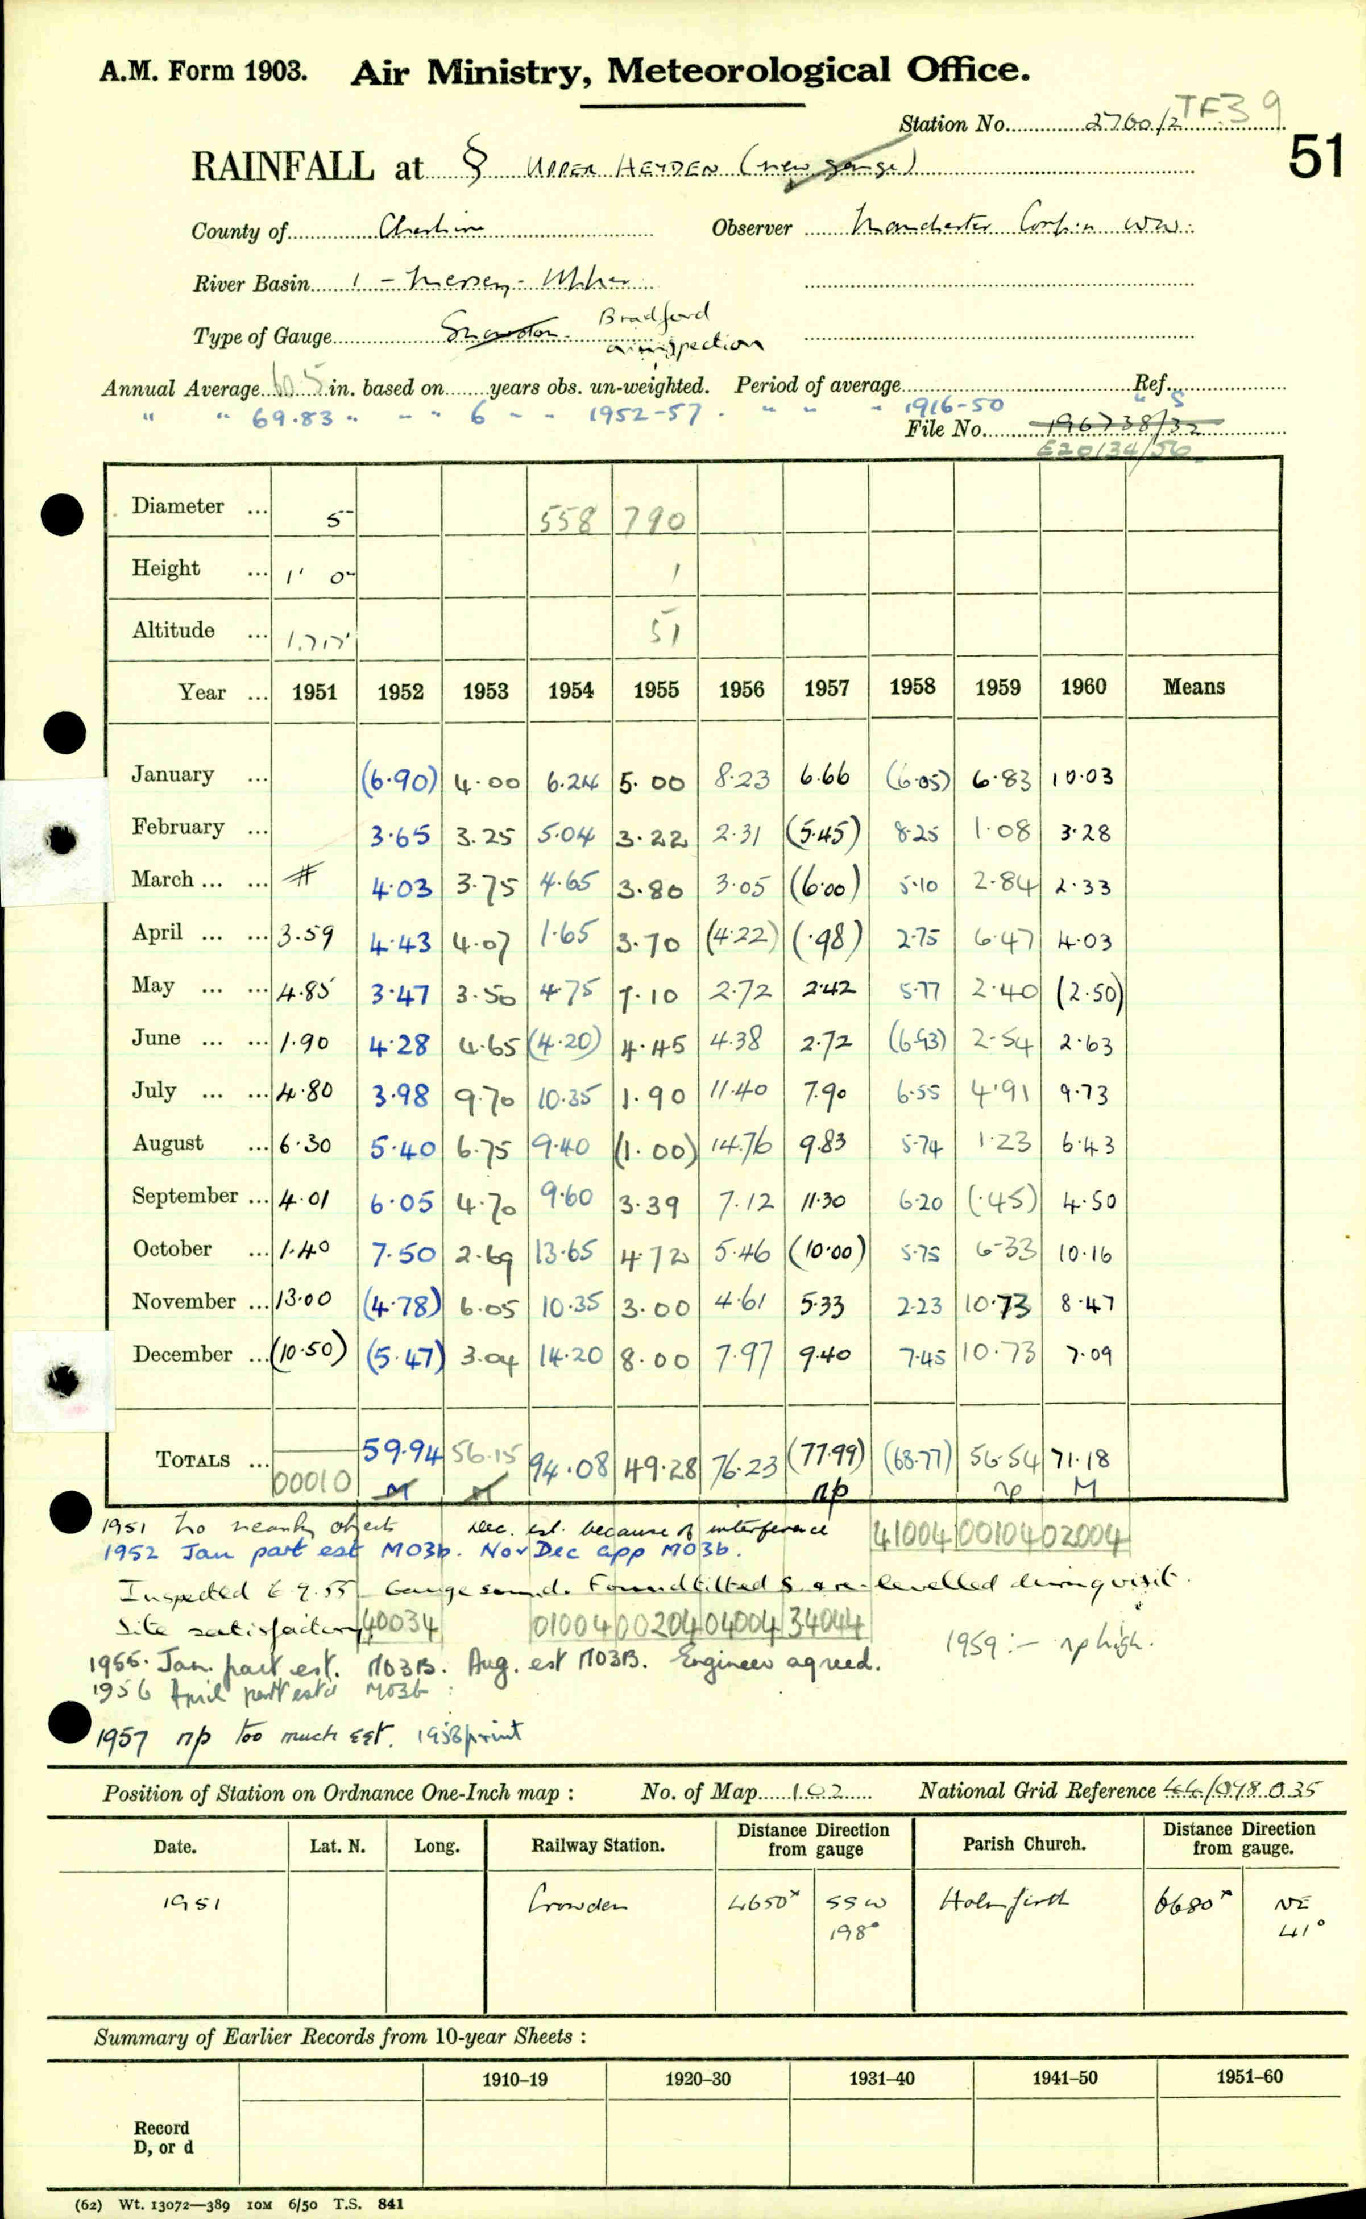 A.M. Form 1903. Air Ministry, Meteorological Office.
Station No. 2760/2 TF39
51
RAINFALL at § UPPER HEYDEN (new gauge)
County of Cheshire Observer Manchester Corp'n WW.
River Basin 1 - Mersey - Upper
Type of Gauge Snowdon. Bradford on inspection
Annual Average 60.5 in. based on years obs. un-weighted. Period of average Ref.
" " 69.83 " " " 6 " " 1952-57 . " " " 1916-50 " S
File No. 196738/32
E20134/56
Diameter ... 5 558 790
Height ... 1' 0" 1
Altitude ... 1,717' 51
Year ... 1951 1952 1953 1954 1955 1956 1957 1958 1959 1960 Means
January ... (6.90) 4.00 6.24 5.00 8.23 6.66 (6.05) 6.83 10.03
February ... 3.65 3.25 5.04 3.22 2.31 (5.45) 8.25 1.08 3.28
March ... ... # 4.03 3.75 4.65 3.80 3.05 (6.00) 5.10 2.84 2.33
April ... ... 3.59 4.43 4.07 1.65 3.70 (4.22) (.98) 2.75 6.47 4.03
May ... ... 4.85 3.47 3.50 4.75 7.10 2.72 2.42 5.77 2.40 (2.50)
June ... ... 1.90 4.28 4.65 (4.20) 4.45 4.38 2.72 (6.93) 2.54 2.63
July ... ... 4.80 3.98 9.70 10.35 1.90 11.40 7.90 6.55 4.91 9.73
August ... 6.30 5.40 6.75 9.40 (1.00) 14.76 9.83 5.74 1.23 6.43
September ... 4.01 6.05 4.70 9.60 3.39 7.12 11.30 6.20 (.45) 4.50
October ... 1.40 7.50 2.69 13.65 4.72 5.46 (10.00) 5.75 6.33 10.16
November ... 13.00 (4.78) 6.05 10.35 3.00 4.61 5.33 2.23 10.73 8.47
December ... (10.50) (5.47) 3.04 14.20 8.00 7.97 9.40 7.45 10.73 7.09
TOTALS ... 59.94 56.15 94.08 49.28 76.23 (77.99) (68.77) 56.54 71.18
00010 M M np np M
1951 No nearby objects Dec. est. because of interference 41004 00104 02004
1952 Jan part est M03b. Nov Dec app M03b.
Inspected 6.9.55 Gauge sound. Found tilted S & re-levelled during visit.
Site satisfactory 40034 01004 00204 04004 34044
1955. Jan. part est. M03B. Aug. est M03B. Engineer agreed. 1959:- np high.
1956 April part est'd M03b
1957 np too much est. 1958 print
Position of Station on Ordnance One-Inch map : No. of Map 102 National Grid Reference 44/098.035
Date. Lat. N. Long. Railway Station. Distance Direction from gauge Parish Church. Distance Direction from gauge.
1951 Crowden 4650ˣ SSW Holmfirth 6680ˣ NE
198° 41°
Summary of Earlier Records from 10-year Sheets :
1910–19 1920–30 1931–40 1941–50 1951–60
Record
D, or d
(62) Wt. 13072—389 10M 6/50 T.S. 841